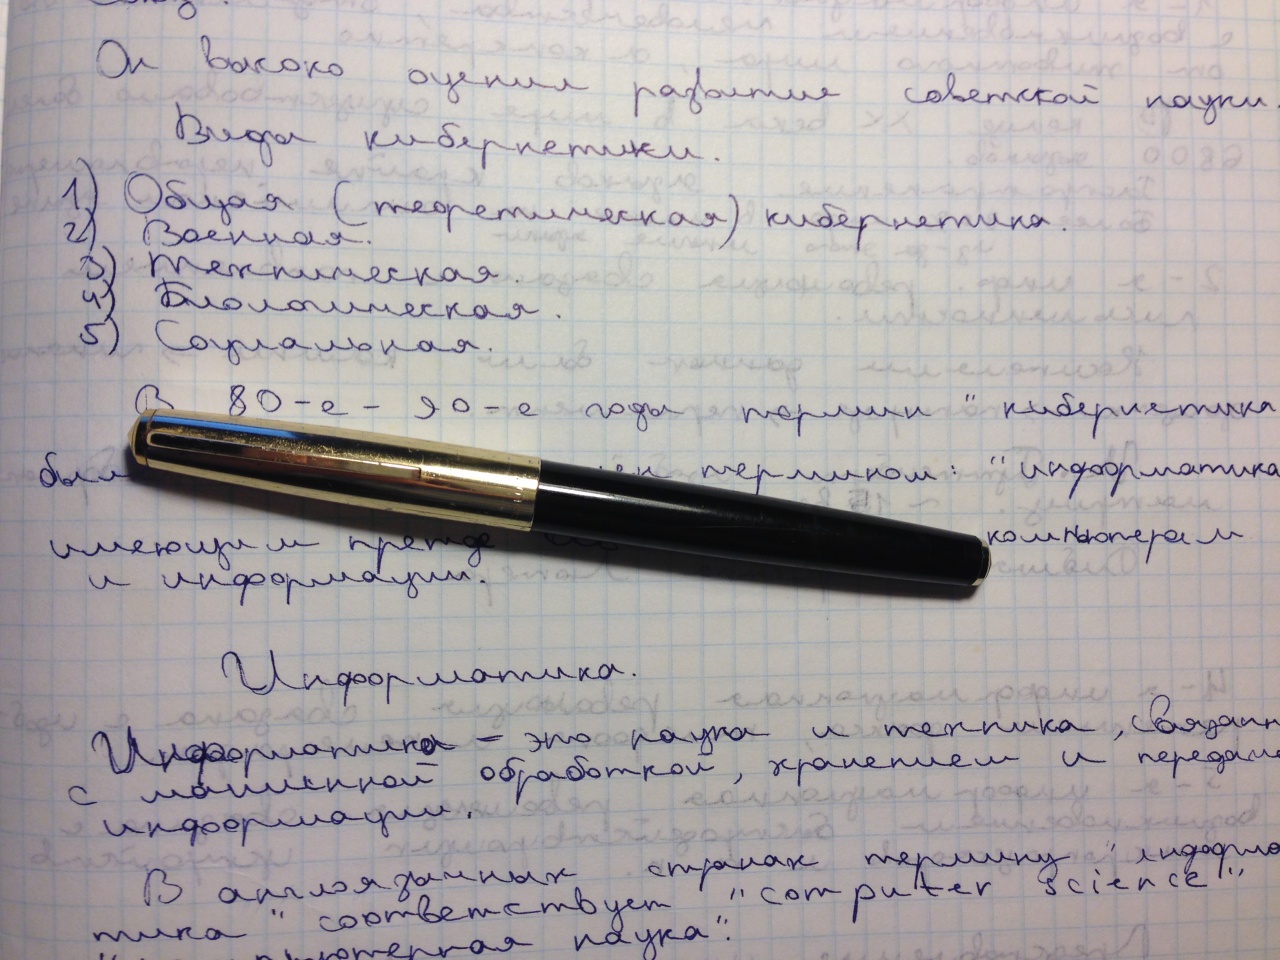 Он высоко оценил развитие советской науки.
Виды кибернетики.
1) Общая (теоретическая) кибернетика.
2) Военная.
3) Техническая.
4) Биологическая.
5) Социальная.
В 80-е - 90-е годы термин "кибернетика
был термином: "информатика
имеющим прежде компьютерам
и информации.
Информатика.
Информатика - это наука и техника, связанн
с машинной обработкой, хранением и передаче
информации.
В англоязычных странах термину "информа
тика" соответствует "computer science"
наука".